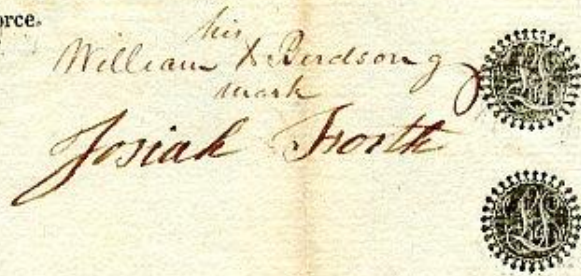 orce.
his
William X Birdsong
mark
Josiah Forth
LS
LS